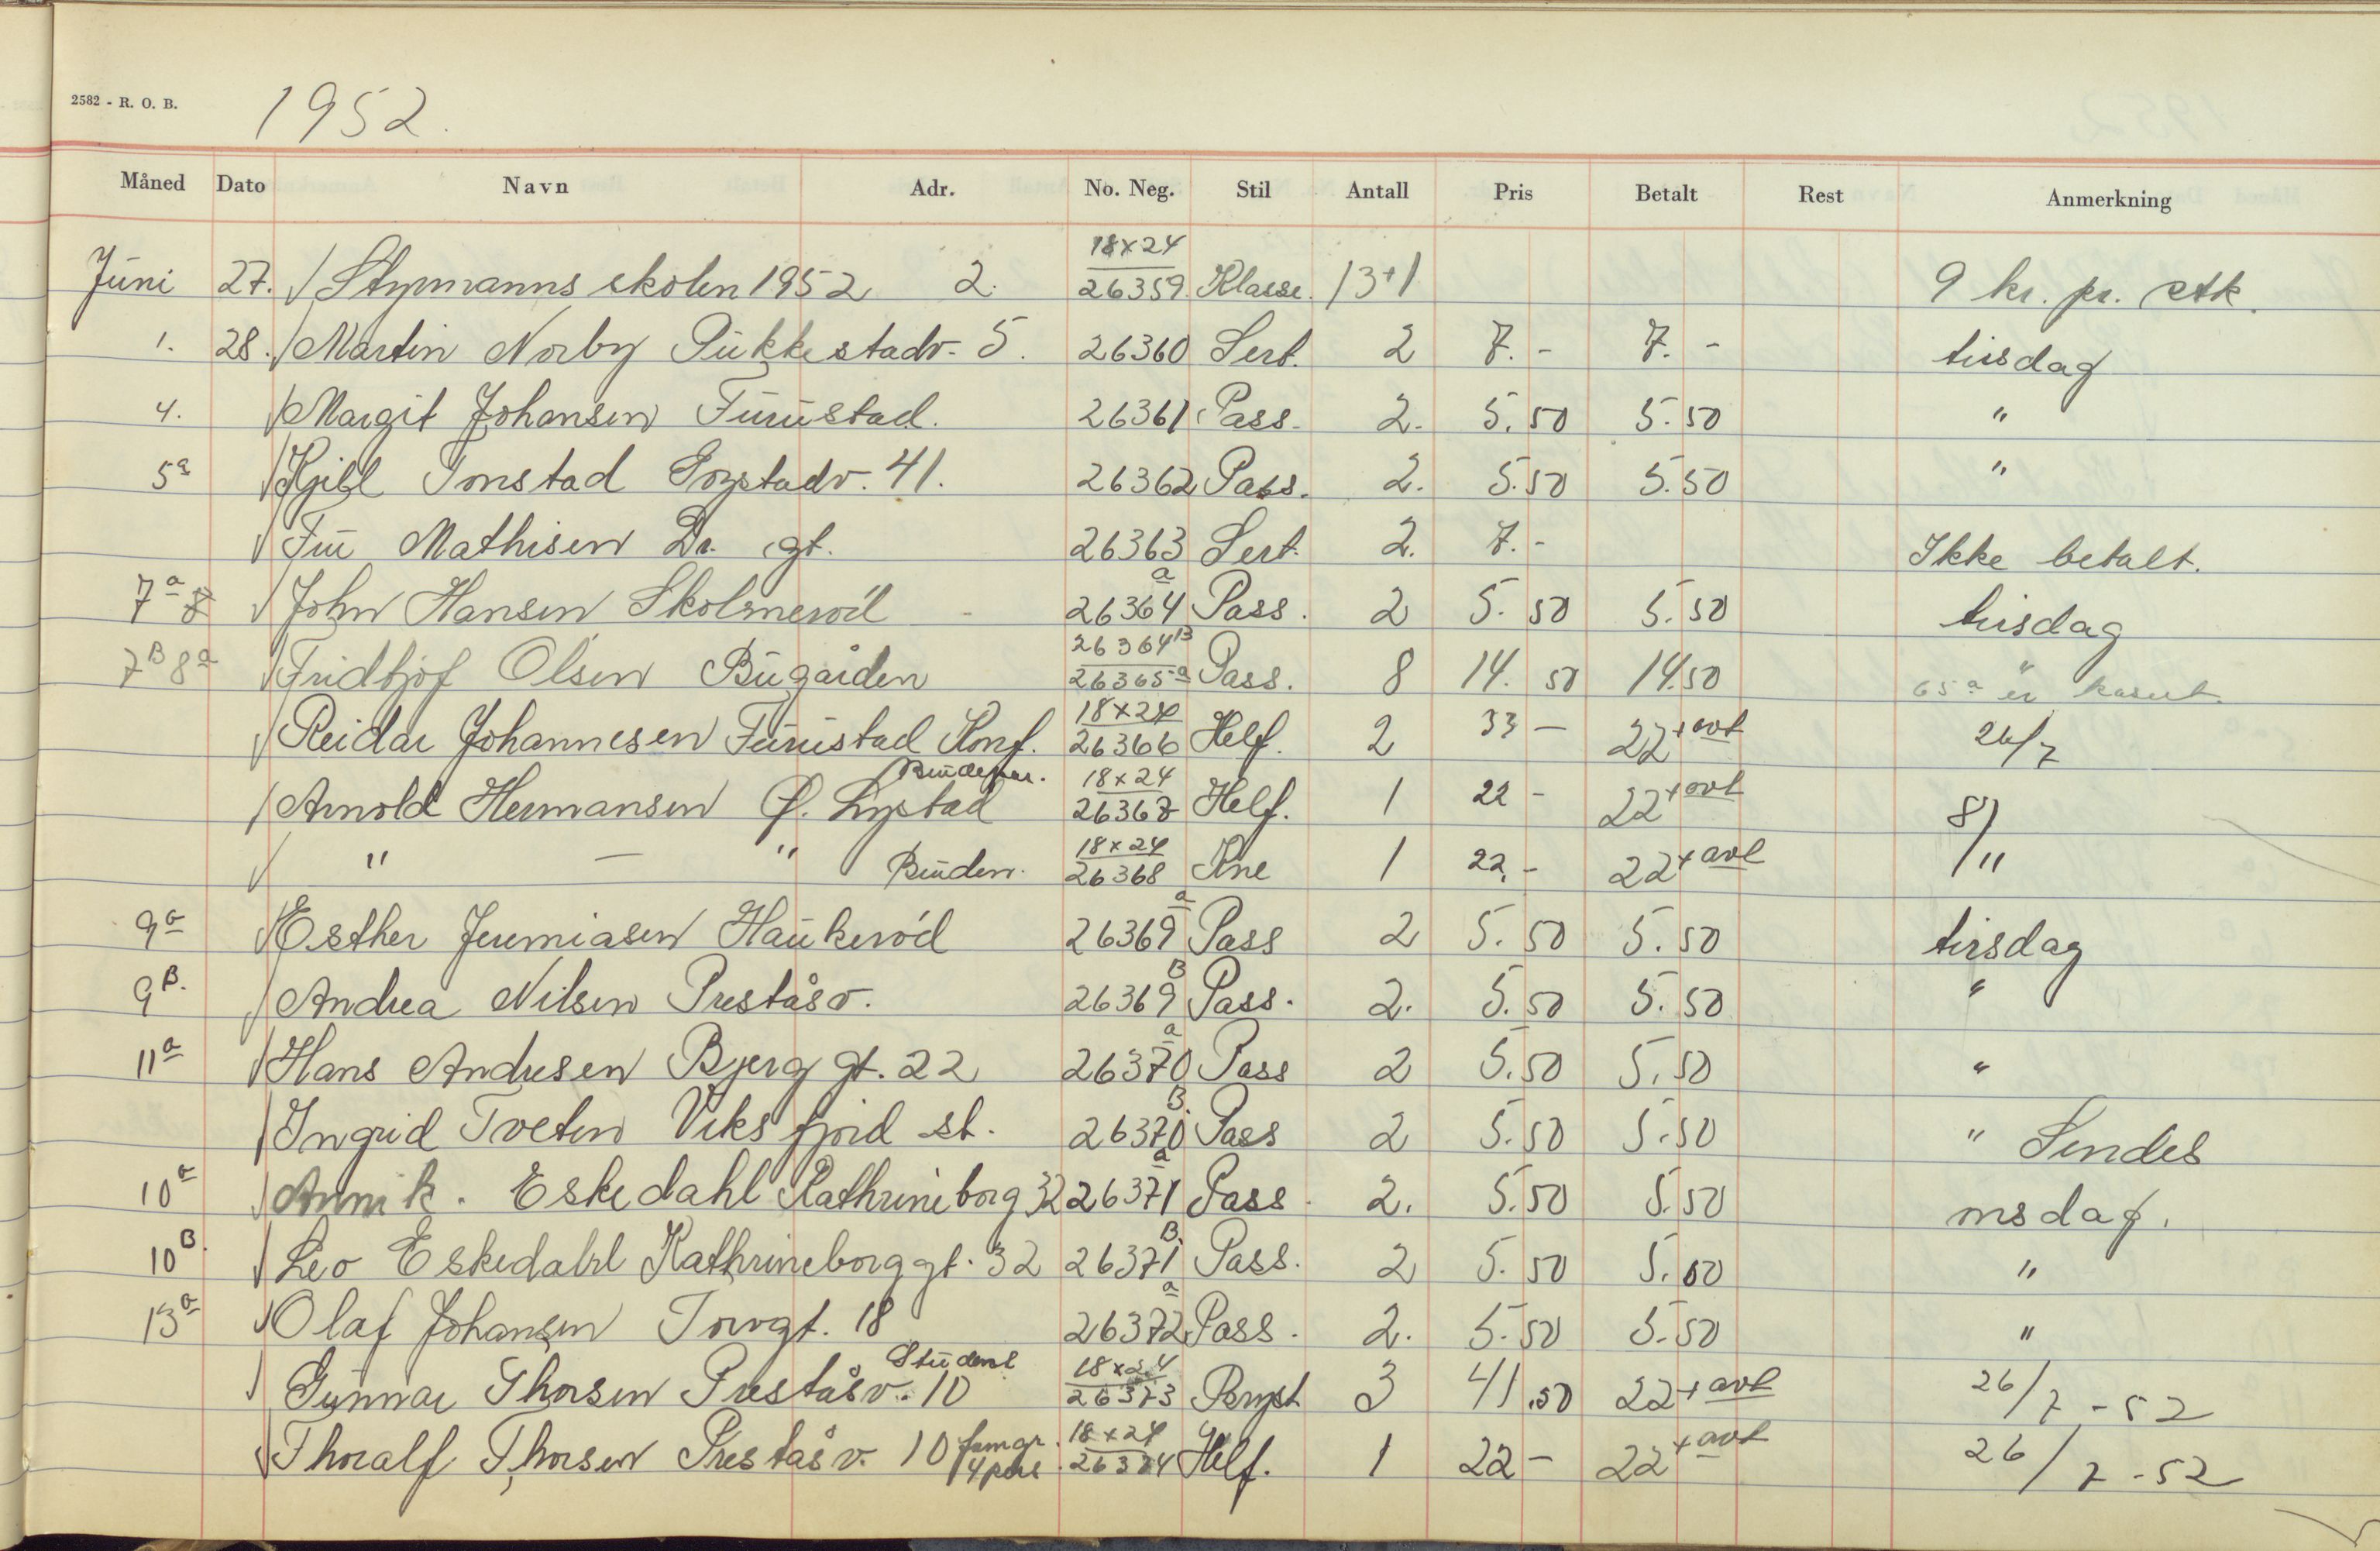 2582 - R. O. B.
1952.
Måned Dato Navn Adr. No. Neg. Stil Antall Pris Betalt Rest Anmerkning
18x24
Juni 27. Styrmanns skolen 1952 2. 26359 Klasse. 13+1 9 kr. pr. stk.
1. 28. Martin Norby Pukkestadv. 5. 26360 Sert. 2 7.- 7.- tirsdag
4. Margit Johansen Furustad. 26361 Pass. 2. 5.50 5.50 "
5a Kjell Tonstad 41. 26362 Pass. 2. 5.50 5.50 "
Fru Mathisen Dr. gt. 26363 Sert. 2. 7.- Ikke betalt.
7a 8 John Hansen Skolmerød 26364a Pass. 2 5.50 5.50 tirsdag
26364B
7B 8a Fridtjof Olsen Bugården 26365a Pass. 8 14.50 14.50 "
65a er kasert.
18x24
Reidar Johannesen Furustad Konf. 26366 Helf. 2 33- 22+avt 26/7
Brudepar. 18x24
Arnold Hermansen Ø. Lystad 26367 Helf. 1 22- 22+avt 8/11
18x24
" — " Bruden. 26368 Kne 1 22.- 22+avt
9a Esther Jeremiasen Haukerød 26369a Pass 2 5.50 5.50 tirsdag
9B. Andrea Nilsen Preståsv. 26369B Pass. 2. 5.50 5.50 "
11a Hans Andresen Bjerggt. 22 26370a Pass 2 5.50 5.50 "
Ingrid Tveten Viksfjord st. 26370B Pass 2 5.50 5.50 " Sendes
10a Annik. Eskedahl Kathrineborg 32 26371a Pass 2. 5.50 5.50 onsdag.
10B. Leo Eskedahl Kathrineborggt. 32 26371B Pass. 2 5.50 5.50 "
13a Olaf Johansen Torvgt. 18 26372a Pass. 2. 5.50 5.50 "
Student 18x24
Gunnar Thorsen Preståsv. 10 26373 Bryst 3 41.50 22+avt 26/7-52
18x24
Thoralf Thorsen Preståsv. 10 famgr. 4 pers. 26374 Helf. 1 22- 22+avt 26/7-52